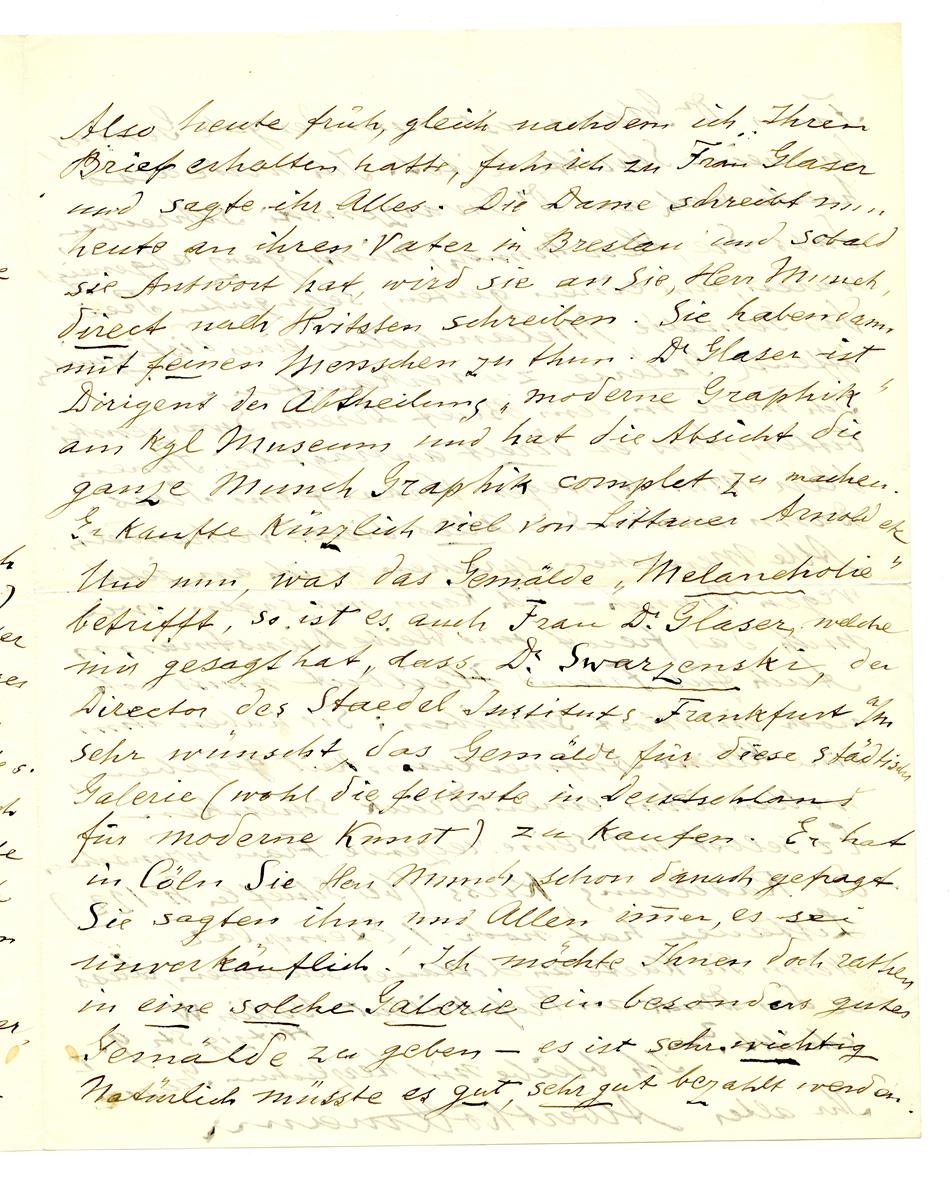 Also heute früh, gleich nachdem ich Ihren
Brief erhalten hatte, fuhr ich zu Frau Glaser
und sagte ihr Alles. Die Dame schreibt nun
heute an ihren Vater in Breslau und sobald
sie Antwort hat, wird sie an Sie, Herr Munch,
direct nach Hvitsten schreiben. Sie haben dann
mit feinen Menschen zu thun. Dr Glaser ist
Dirigent der Abtheilung „moderne Graphik"
am Kgl Museum und hat die Absicht die
ganze Munch Graphik complet zu machen.
Er kaufte kürzlich viel von Littauer Arnold etc
Und nun, was das Gemälde „Melancholie"
betrifft, so ist es auch Frau Dr Glaser, welche
mir gesagt hat, dass Dr. Swarzenski, der
Director des Staedel Instituts Frankfurt a/m
sehr wünscht, das Gemälde für diese städtische
Galerie (wohl die feinste in Deutschland
für moderne Kunst) zu kaufen. Er hat
in Cöln Sie Herr Munch schon danach gefragt.
Sie sagten ihm und Allen imer, es sei
unverkäuflich! Ich möchte Ihnen doch rathen
in eine solche Galerie ein besonders gutes
Gemälde zu geben – es ist sehr wichtig
Natürlich müsste es gut, sehr gut bezahlt werden.